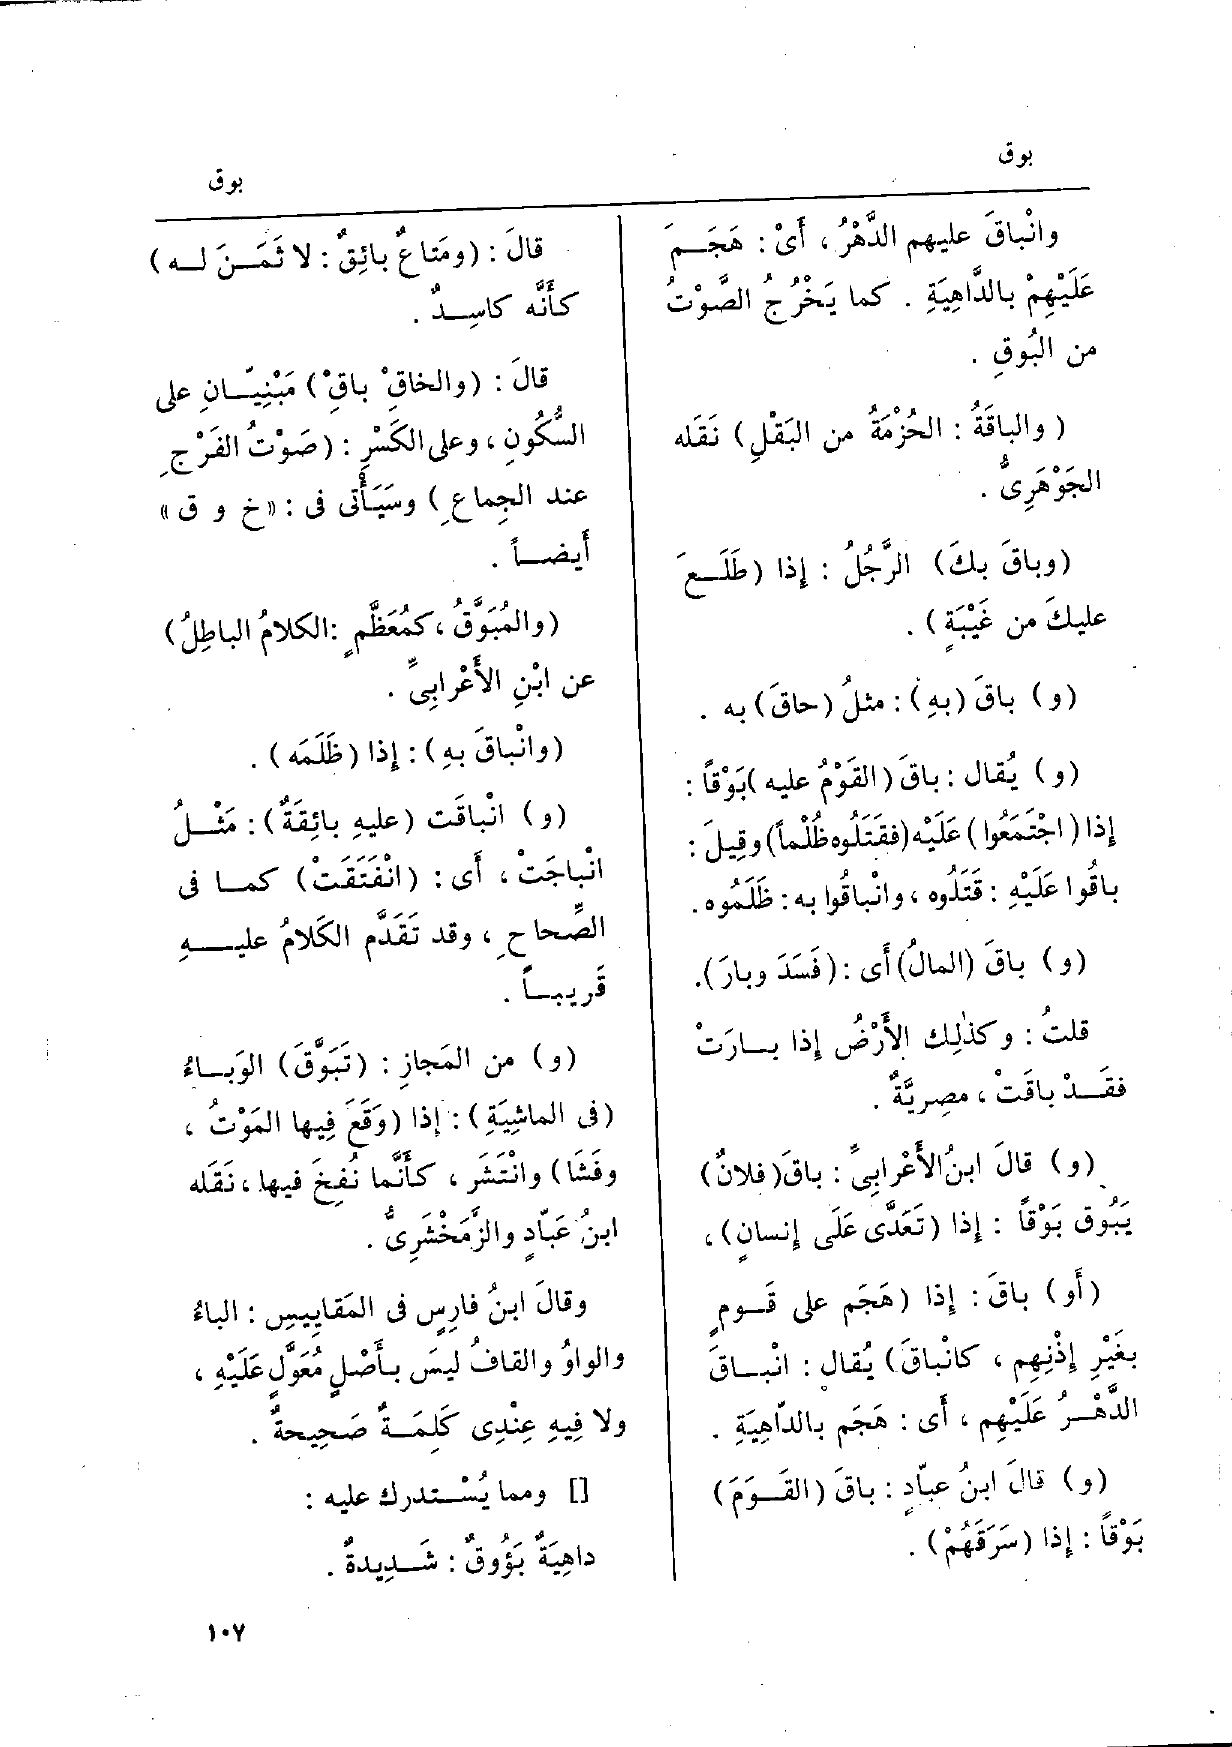 بوق
بوق
وانْباقَ عليهم الدَّهْرُ ، أَىْ : هَجَـمَ
عَلَيْهِمْ بالدَّاهِيَةِ . كما يَخْرُجُ الصَّوْتُ
من البُوقِ .
( والباقَةُ : الحُزْمَةُ من البَقْلِ ) نَقَله
الجَوْهَرِىُّ .
(وباقَ بكَ) الرَّجُلُ : إذا (طَلَـعَ
عليكَ من غَيْبَةٍ) .
(و) باقَ (بهِ) : مثلُ (حاقَ) به .
(و) يُقال : باقَ (القَوْمُ عليه) بَوْقاً :
إذا (اجْتَمَعُوا) عَلَيْه (فقَتَلُوه ظُلْماً) وقِيلَ :
باقُوا عَلَيْهِ : قَتَلُوه ، وانْباقُوا به : ظَلَمُوه .
(و) باقَ (المالُ) أى : (فَسَدَ وبارَ) .
قلتُ : وكذٰلِك الأَرْضُ إذا بـارَتْ
فقَـدْ باقَتْ ، مصرِيَّةٌ .
(و) قالَ ابنُ الأَعْرابِىِّ : باقَ (فلانٌ)
يَبُوق بَوْقاً : إذا (تَعَدَّى عَلَى إنسانٍ) ،
(أو) باقَ : إذا (هَجَم على قَـومٍ
بغَيْرِ إذْنِهِم ، كانْباقَ) يُقال : انْبـاقَ
الدَّهْـرُ عَلَيْهِم ، أَى : هَجَم بالدّاهِيَةِ .
(و) قالَ ابنُ عبّادٍ : باقَ (القَـوَمَ)
بَوْقاً : إذا (سَرَقَهُمْ) .
قالَ : (ومَتاعٌ بائِقٌ : لا ثَمَـنَ لـه)
كأَنَّه كاسِـدٌ .
قالَ : (والخاقْ باقْ) مَبْنِيّـانِ على
السُّكُونِ ، وعلى الكَسْرِ : (صَوْتُ الفَرْجِ
عند الجِماعِ) وسَيَأْتى فى : «خ و ق»
أَيضـاً .
(والمُبَوَّقُ ، كمُعَظَّمٍ : الكلامُ الباطِلُ)
عن ابْنِ الأَعْرابِىِّ .
(وانْباقَ بهِ) : إذا (ظَلَمَه) .
(و) انْباقَت (عليهِ بائِقَةٌ) : مَثْـلُ
انْباجَتْ ، أَى : (انْفَتَقَتْ) كمـا فى
الصِّحاحِ ، وقد تَقَدَّم الكَلامُ عليـهِ
قَريبـاً .
(و) من المَجازِ : (تَبَوَّقَ) الوَبـاءُ
(فى الماشِيَةِ) : إذا (وَقَعَ فِيها المَوْتُ ،
وفَشَا) وانْتَشَر ، كأَنَّما نُفِخَ فيها ، نَقَله
ابنُ عَبّادٍ والزَّمَخْشَرِىُّ .
وقالَ ابنُ فارِسٍ فى المَقايِيسِ : الباءُ
والواوُ والقافُ ليسَ بـأَصْلٍ مُعَوَّلٍ عَلَيْهِ ،
ولا فِيهِ عِنْدِى كَلِمَـةٌ صَحِيحةٌ .
[] ومما يُسْـتدرك عليه :
داهِيَةٌ بَؤُوقٌ : شَـدِيدةٌ .
١٠٧